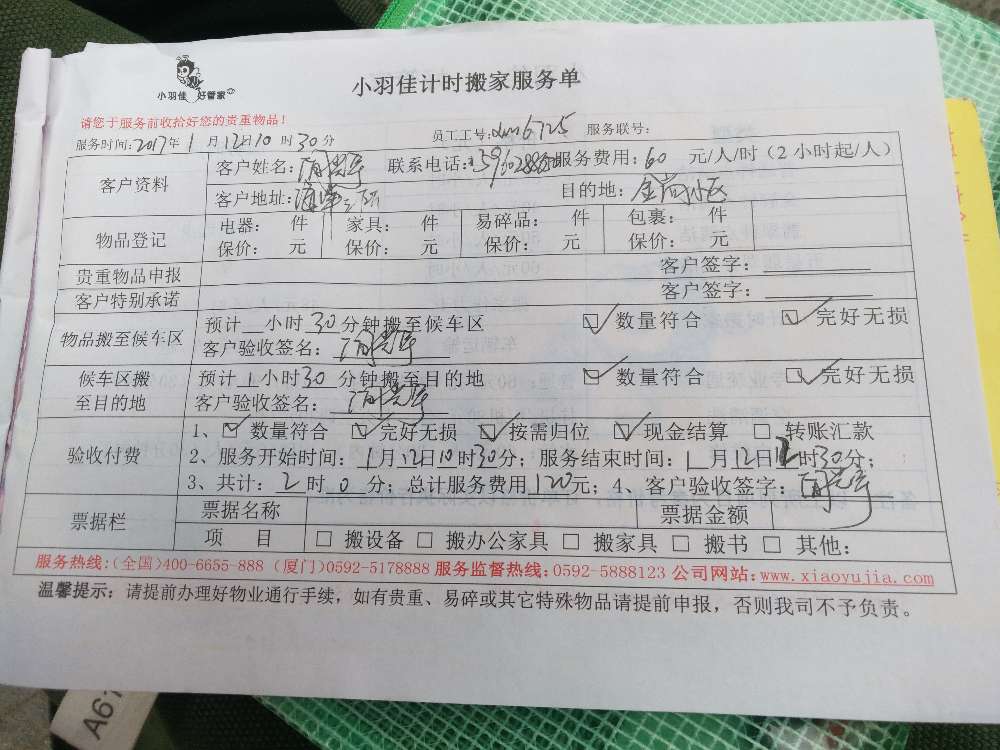 小羽佳 好管家
小羽佳计时搬家服务单
请您于服务前收拾好您的贵重物品！
服务时间：2017年1月12日10时30分 员工工号： 6725 服务联号：
客户资料 客户姓名： 联系电话： 服务费用：60 元/人/时（2小时起/人）
客户地址： 目的地：金尚小区
物品登记 电器： 件 家具： 件 易碎品： 件 包裹： 件
保价： 元 保价： 元 保价： 元 保价： 元
贵重物品申报 客户签字：
客户特别承诺 客户签字：
物品搬至候车区 预计__小时30分钟搬至候车区 ☑数量符合 ☑完好无损
客户验收签名：
候车区搬至目的地 预计1小时30分钟搬至目的地 ☑数量符合 ☑完好无损
客户验收签名：
验收付费 1、☑数量符合 ☑完好无损 ☑按需归位 ☑现金结算 □转账汇款
2、服务开始时间：1月12日10时30分；服务结束时间：1月12日12时30分；
3、共计：2时0分；总计服务费用120元；4、客户验收签字：
票据栏 票据名称 票据金额
项 目 □搬设备 □搬办公家具 □搬家具 □搬书 □其他：
服务热线：(全国)400-6655-888 (厦门)0592-5178888 服务监督热线：0592-5888123 公司网站：www.xiaoyujia.com
温馨提示：请提前办理好物业通行手续，如有贵重、易碎或其它特殊物品请提前申报，否则我司不予负责。
A67